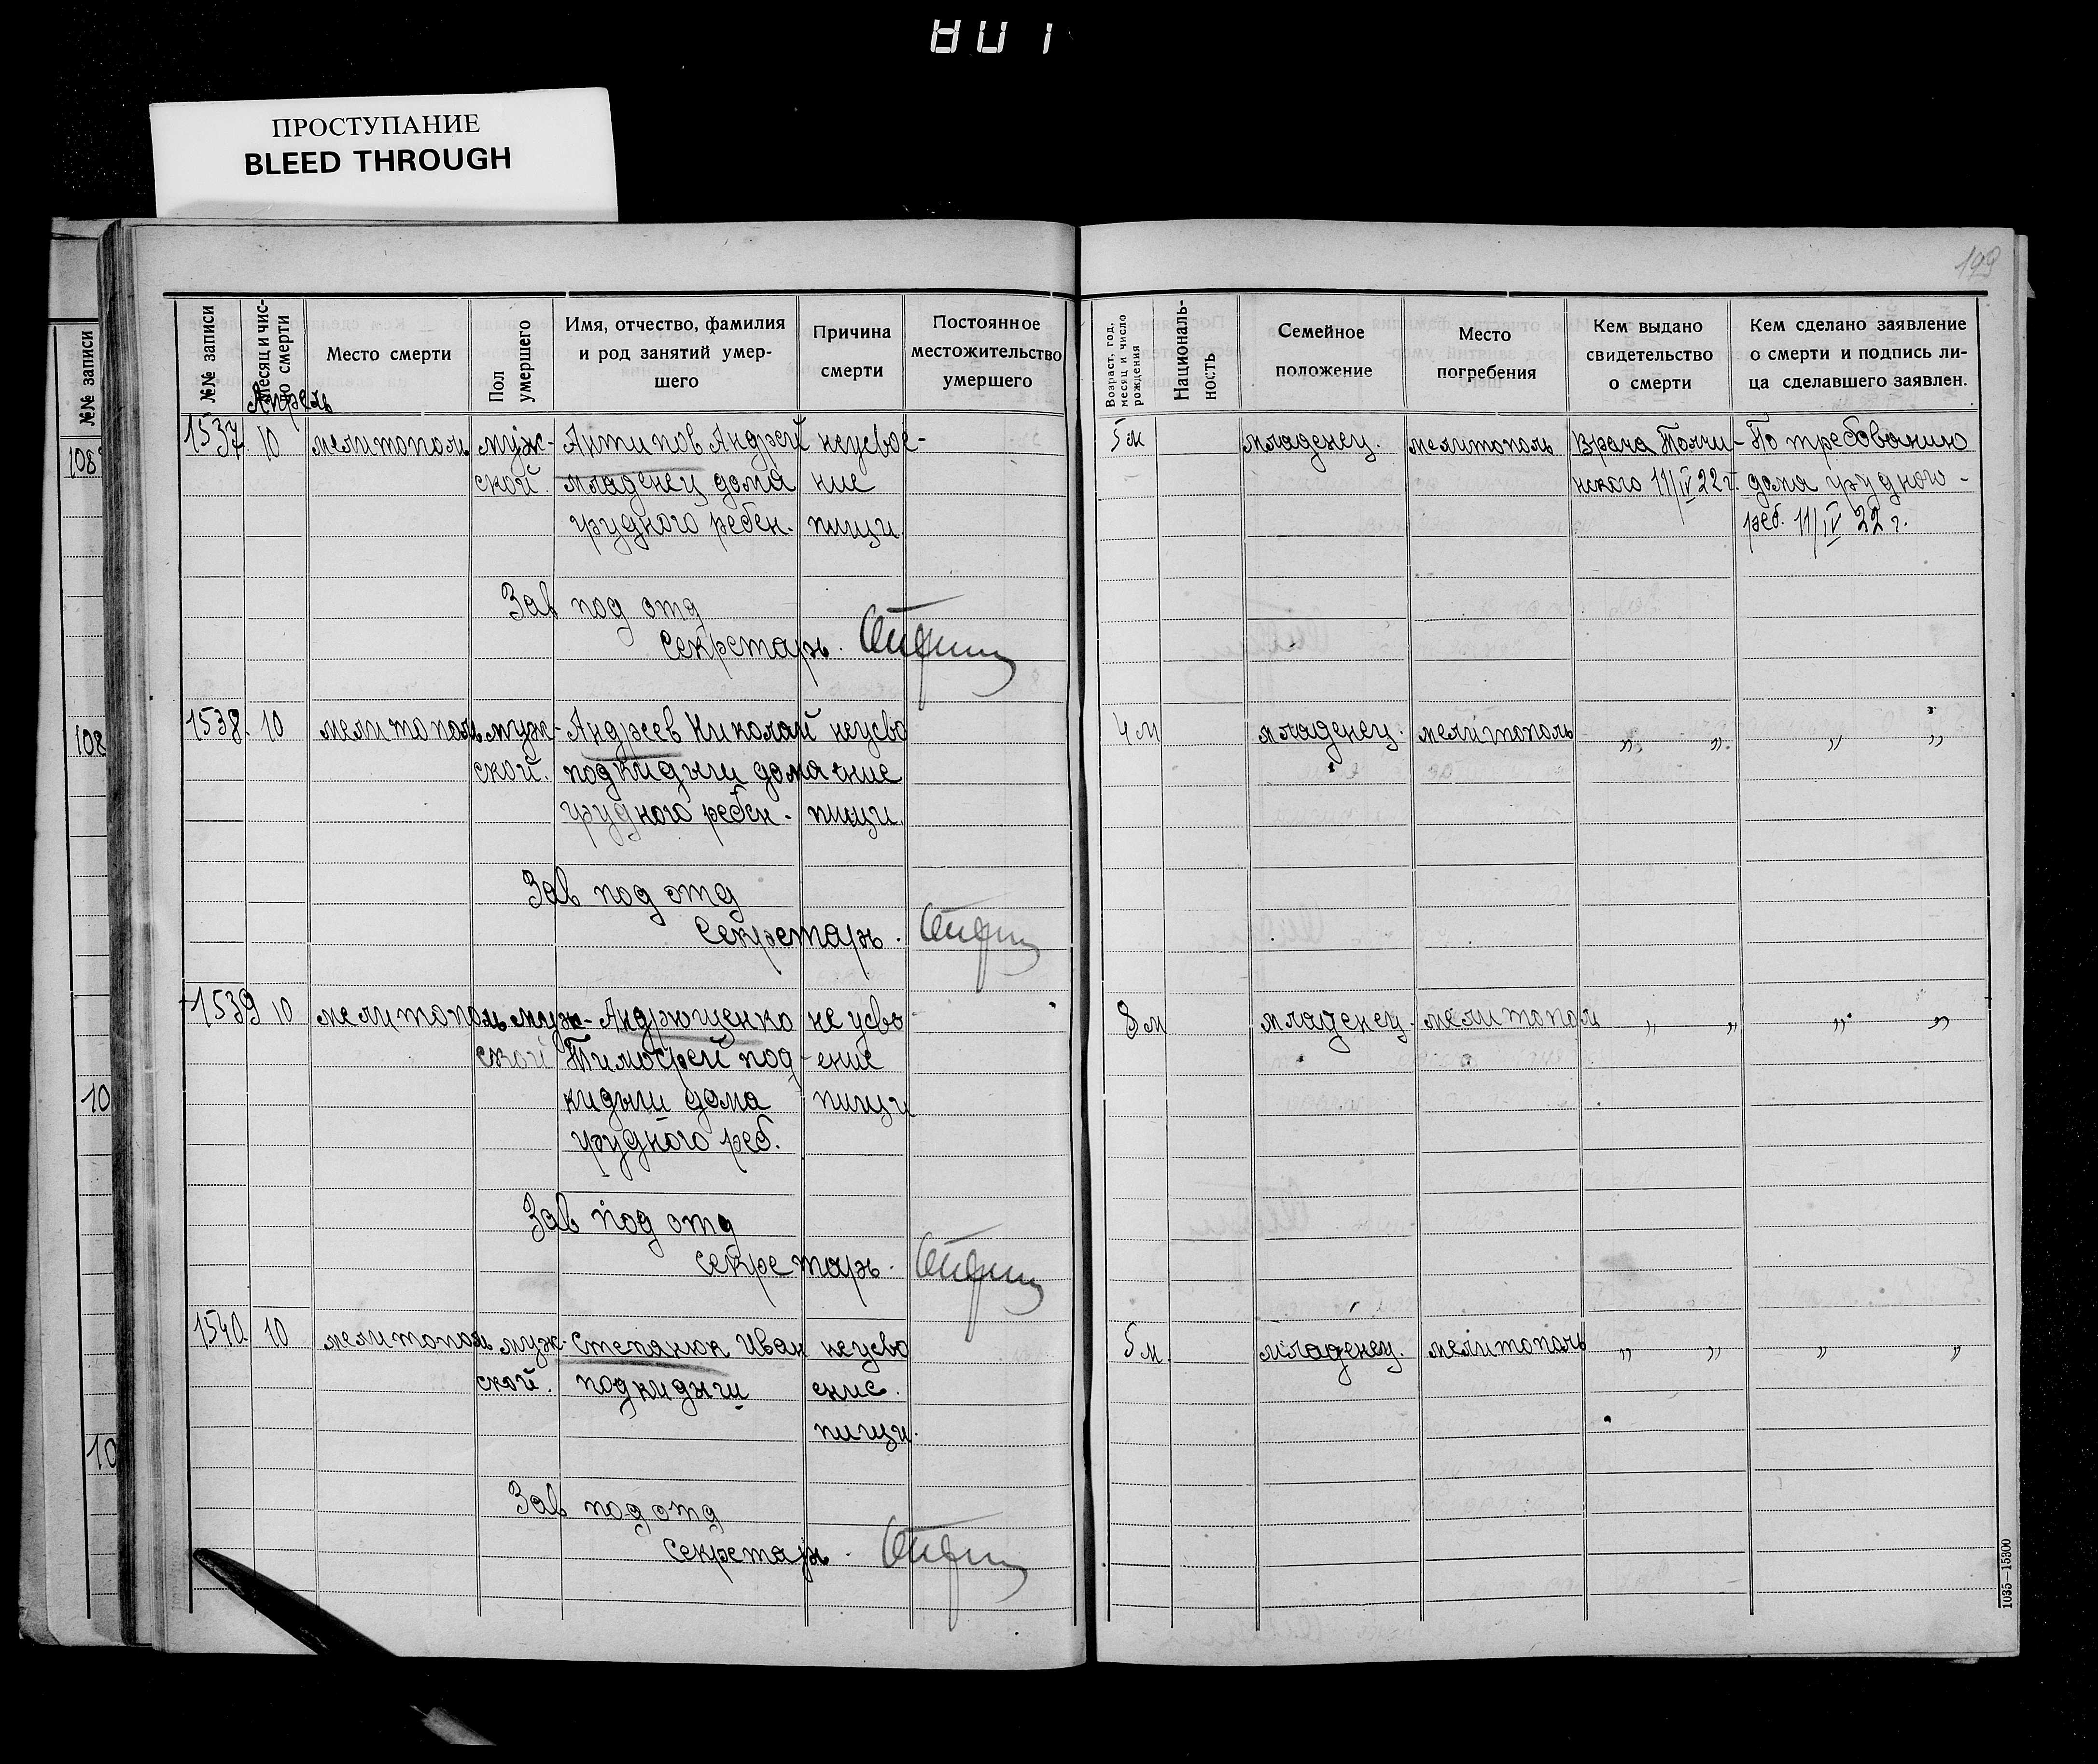 ПРОСТУПАНИЕ
BLEED THROUGH
199
№№ записи
Месяц и чис-
ло смерти
Апрель
Место смерти
Пол
умершего
Имя, отчество, фамилия
и род занятий умер-
шего
Причина
смерти
Постоянное
местожительство
умершего
Возраст, год,
месяц и число
рождения
Националь-
ность
Семейное
положение
Место
погребения
Кем выдано
свидетельство
о смерти
Кем сделано заявление
о смерти и подпись ли-
ца сделавшего заявлен.
№№ записи
108
108
10
10
1537. 10 мелитополь муж- Антипов Андрей неусвое- 5 м младенец. мелитополь Врача Толчи- По требованию
ской. младенец дома ние нского 11/IV 22 г. дома грудного -
грудного ребен. пищи реб. 11/IV 22 г.
Зав под отд
Секретарь.
1538. 10 мелитополь муж- Андреев Николай неусво 4 м младенец. мелитополь „ „ „ „
ской. подкидыш дома ение
грудного ребен. пищи.
Зав под отд
Секретарь.
1539 10 мелитополь муж- Андрющенко не усво 8 м младенец. мелитополь „ „ „ „
ской Тимофей под- ение
кидыш дома пищи
грудного реб.
Зав под отд
секретарь.
1540. 10 мелитополь муж- Степанюк Иван неусво 5 м. младенец. мелитополь „ „ „ „
ской. подкидыш ение.
пищи.
Зав под отд
Секретарь.
1035—15300